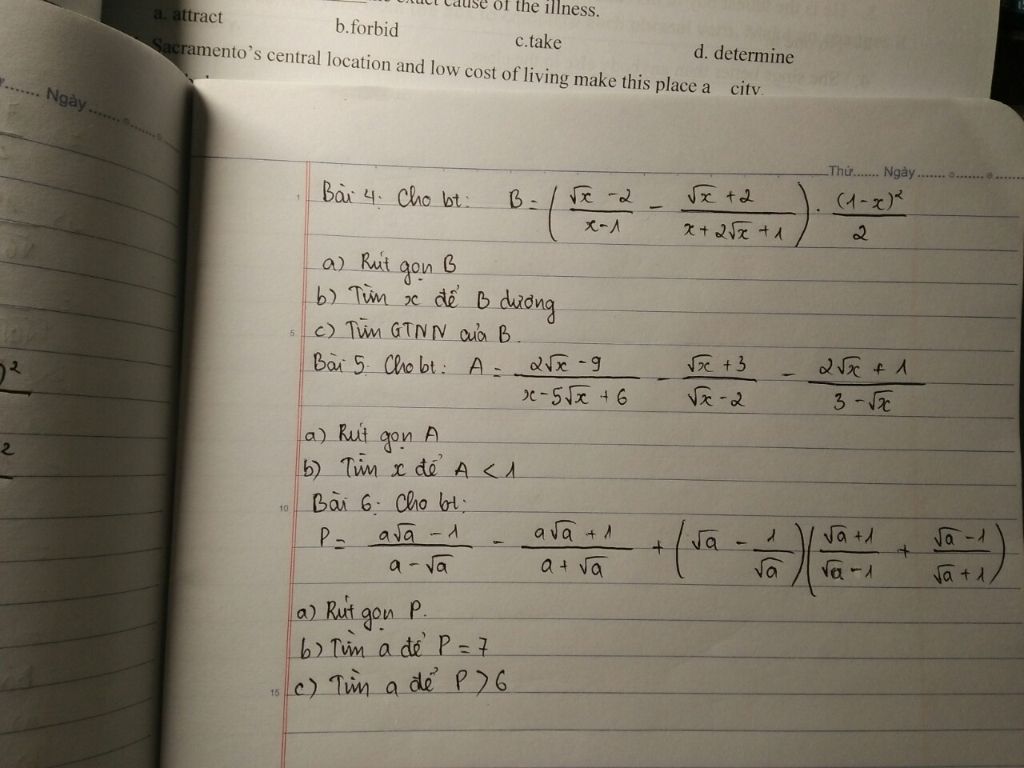 exact cause of the illness.
a. attract b.forbid c.take d. determine
Sacramento's central location and low cost of living make this place a city.
Ngày
Thứ Ngày
Bài 4: Cho bt: B = ( (√x - 2)/(x - 1) - (√x + 2)/(x + 2√x + 1) ) . (1-x)²/2
a) Rút gọn B
b) Tìm x để B dương
5 c) Tìm GTNN của B.
Bài 5: Cho bt: A = (2√x - 9)/(x - 5√x + 6) - (√x + 3)/(√x - 2) - (2√x + 1)/(3 - √x)
a) Rút gọn A
b) Tìm x để A < 1
10 Bài 6: Cho bt:
P = (a√a - 1)/(a - √a) - (a√a + 1)/(a + √a) + (√a - 1/√a)((√a + 1)/(√a - 1) + (√a - 1)/(√a + 1))
a) Rút gọn P.
b) Tìm a để P = 7
15 c) Tìm a để P > 6